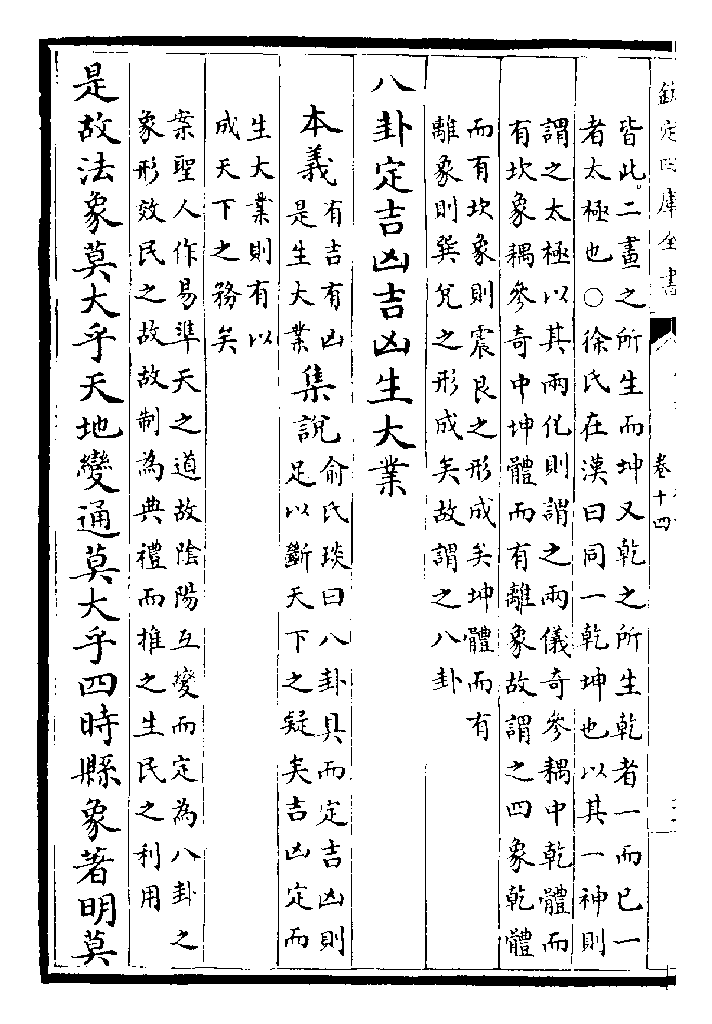 欽定四庫全書
卷十四
皆此二畫之所生而坤又乾之所生乾者一而已一
者太極也○徐氏在漢曰同一乾坤也以其一神則
謂之太極以其兩化則謂之兩儀奇參耦中乾體而
有坎象耦參奇中坤體而有離象故謂之四象乾體
而有坎象則震艮之形成矣坤體而有
離象則巽兌之形成矣故謂之八卦
八卦定吉凶吉凶生大業
本義有吉有凶
是生大業
集說俞氏琰曰八卦具而定吉凶則
足以斷天下之疑矣吉凶定而
生大業則有以
成天下之務矣
案聖人作易準天之道故陰陽互變而定為八卦之
象形效民之故故制為典禮而推之生民之利用
是故法象莫大乎天地變通莫大乎四時縣象著明莫